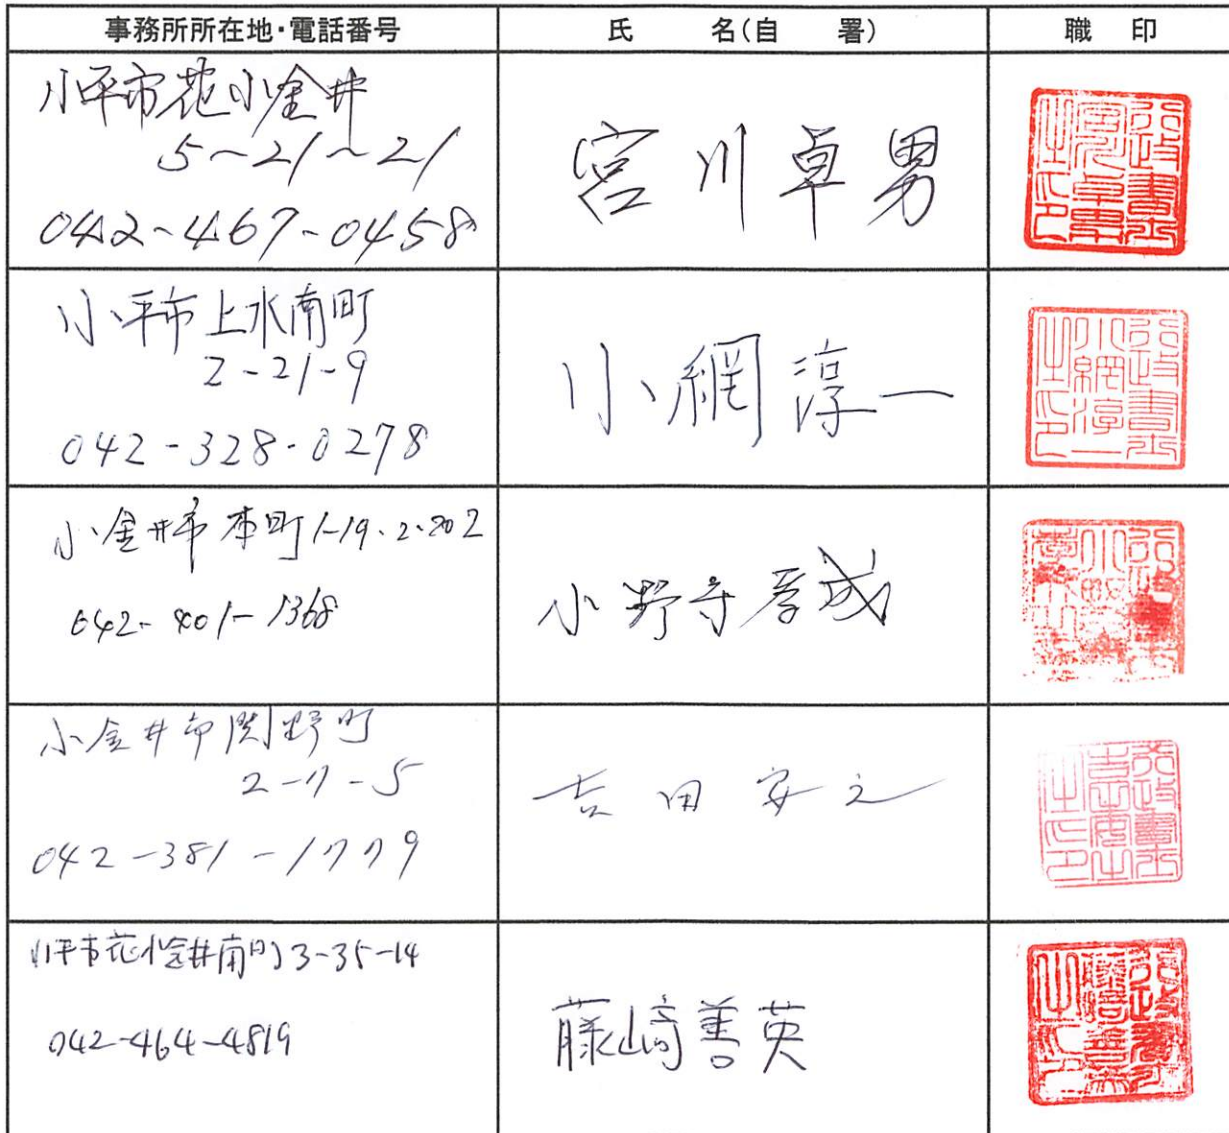 事務所所在地・電話番号 氏 名(自 署) 職 印
小平市花小金井
5~21~21
042-467-0458
宮川卓男
行政書士宮川卓男之印
小平市上水南町
2-21-9
042-328-0278
小網淳一
行政書士小網淳一之印
小金井市本町1-19-2-202
042-401-1368
小野寺孝成
小金井市関野町
2-7-5
042-381-1779
吉田安之
行政書士吉田安之之印
小平市花小金井南町3-35-14
042-464-4819
藤崎善英
行政書士藤崎善英之印